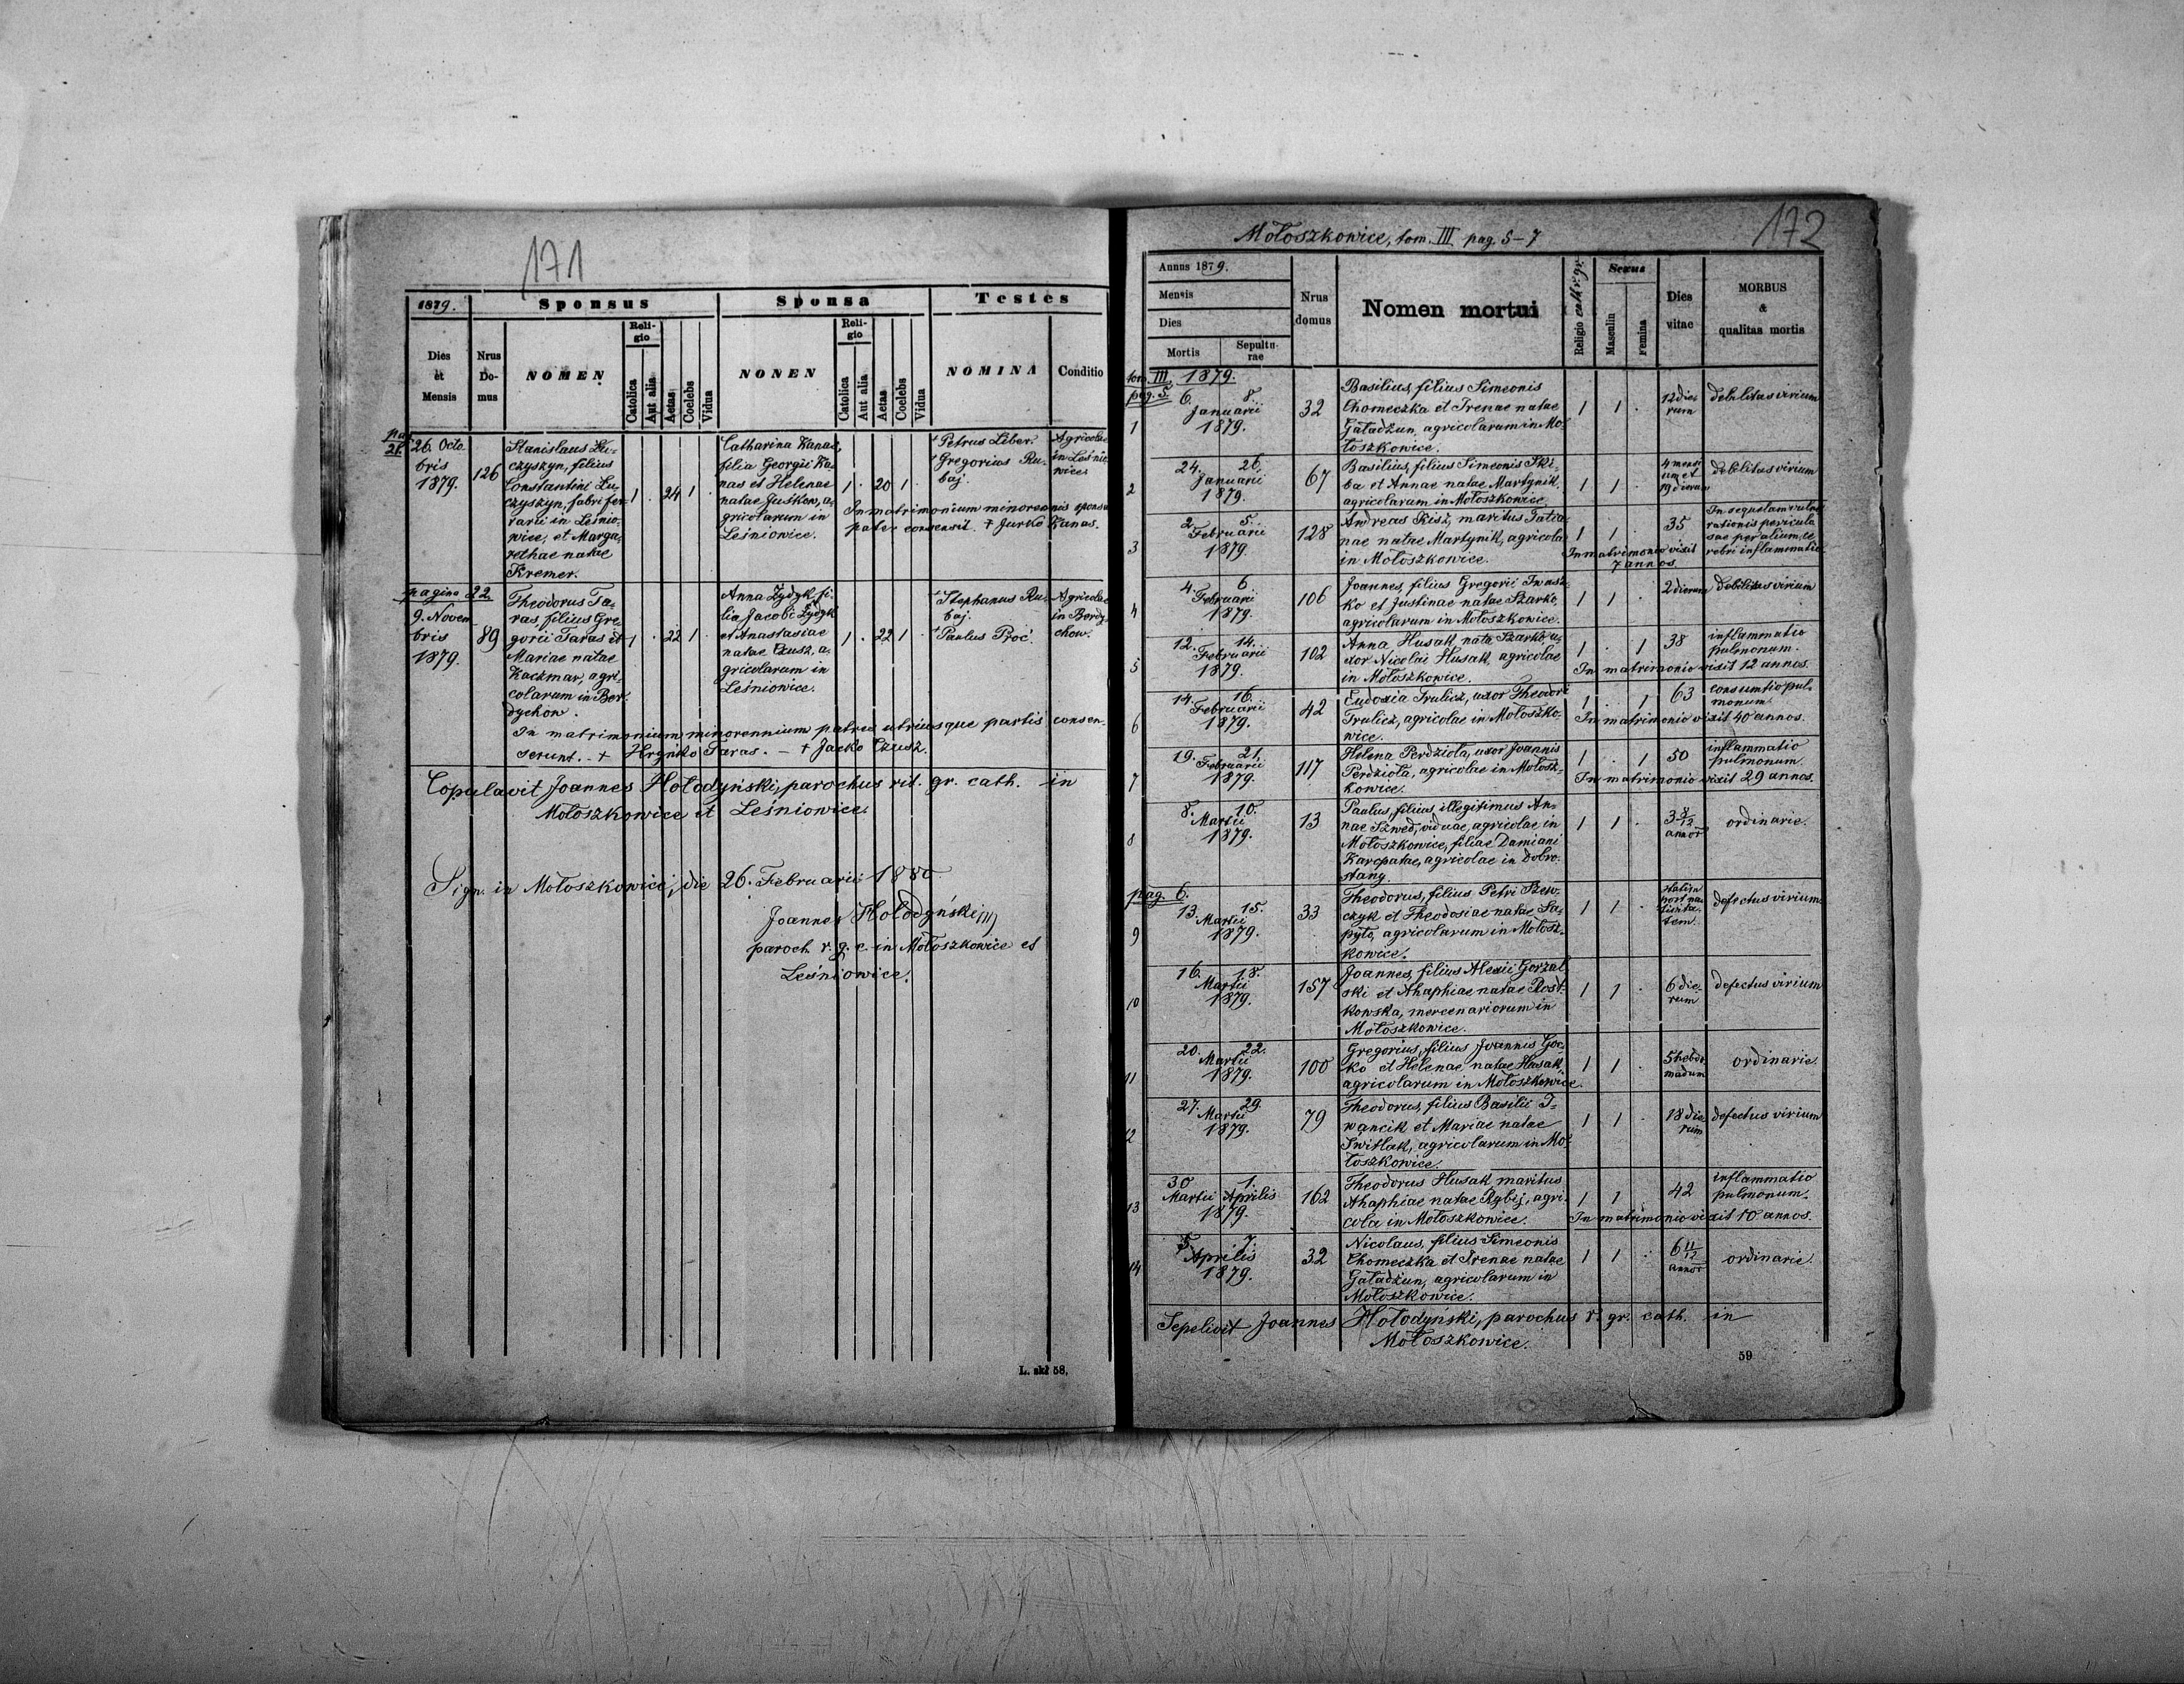 171
1879.
Sponsus
Sponsa
Testes
Dies et Mensis
Nrus Do- mus
NOMEN
Reli- gio
Catolica
Aut alia
Aetas
Coelebs
Vidua
NONEN
Reli- gio
Catolica
Aut alia
Aetas
Coelebs
Vidua
NOMINA
Conditio
pag. 21.
26. Octo-
bris
1879.
126
Stanislaus Łu-
czyszyn, filius
Constantini Łu-
czyszyn, fabri fer-
rarii in Leśnio-
wice, et Marga-
rethae natae
Kremer.
1 . 24 1 .
Catharina Kanas,
filia Georgii Ka-
nas et Helenae
natae Juśkow, a-
gricolarum in
Leśniowice.
1 . 20 1 .
In matrimonium minorennis sponsae
pater consensit. + Jurko Kanas.
+ Petrus Liber.
+ Gregorius Ru-
baj.
Agricolae
in Leśnio-
wice.
pagina 22.
9. Novem-
bris
1879.
89
Theodorus Ta-
ras, filius Gre-
gorii Taras et
Mariae natae
Kaczmar, agri-
colarum in Ber-
dychow.
1 . 22 1 .
Anna Zydyk, fi-
lia Jacobi Zydyk
et Anastasiae
natae Czusz, a-
gricolarum in
Leśniowice.
1 . 22 1 .
+ Stephanus Ru-
baj.
+ Paulus Proc.
Agricolae
in Berdy-
chow.
In matrimonium minorennium patres utriusque partis consen-
serunt. - + Hryńko Taras. - + Jacko Czusz.
Copulavit Joannes Hołodyński, parochus rit. gr. cath. in
Mołoszkowice et Leśniowice.
Sign. in Mołoszkowice, die 26. Februarii 1880
Joannes Hołodyński
paroch. r. g. c. in Mołoszkowice et
Leśniowice.
L. skł 58.
Mołoszkowice, tom. III. pag. 5-7
172
Annus 1879.
Mensis
Dies
Mortis
Sepultu- rae
Nrus domus
Nomen mortui
Religio cath. r. gr.
Sexus
Masculin
Femina
Dies vitae
MORBUS & qualitas mortis
tom. III. 1879.
pag. 5.
1
6. 8.
Januarii
1879.
32
Basilius, filius Simeonis
Chomeczka et Irenae natae
Gaładżun, agricolarum in Mo-
łoszkowice.
1 1 .
12 die-
rum
debilitas virium
2
24. 26.
Januarii
1879.
67
Basilius, filius Simeonis Ski-
ba et Annae natae Martynik,
agricolarum in Mołoszkowice
1 1 .
4 mensi-
um et
19 dierum
debilitas virium
3
2. 5.
Februarii
1879.
128
Andreas Kisz, maritus Tatia-
nae natae Martynik, agricola
in Mołoszkowice.
1 1 .
35
In matrimonio vixit
7 annos.
In sequelam vulne-
rationis pericula-
sae per alium, ce-
rebri inflammatio.
4
4. 6.
Februarii
1879.
106
Joannes, filius Gregorii Iwasz-
ko et Justinae natae Szarko,
agricolarum in Mołoszkowice.
1 1 .
2 dierum
debilitas virium
5
12. 14.
Februarii
1879.
102
Anna Husak, nata Szarko, u-
xor Nicolai Husak, agricolae
in Mołoszkowice.
1 . 1
38
inflammatio
pulmonum.
In matrimonio vixit 12 annos.
6
14. 16.
Februarii
1879.
42
Eudoxia Trulicz, uxor Theodori
Trulicz, agricolae in Mołoszko-
wice.
1 . 1
63
consumtio pul-
monum.
In matrimonio vixit 40 annos.
7
19. 21.
Februarii
1879.
117
Helena Perdzioła, uxor Joannis
Perdzioła, agricolae in Mołosz-
kowice.
1 . 1
50
inflammatio
pulmonum.
In matrimonio vixit 29 annos.
8
8. 10.
Martii
1879.
13
Paulus, filius illegitimus An-
nae Szwed, viduae, agricolae in
Mołoszkowice, filiae Damiani
Karcpatae, agricolae in Dobro-
stany.
1 1 .
3 8/12
annor
ordinarie.
pag. 6.
9
13. 15.
Martii
1879.
33
Theodorus, filius Petri Szew-
czyk et Theodosiae natae Sa-
pyto, agricolarum in Mołosz-
kowice.
1 1 .
statim
post na-
tivita-
tem.
defectus virium
10
16. 18.
Martii
1879.
157
Joannes, filius Alexii Gorzal-
ski et Ahaphiae natae Rost-
kowska, mercenariorum in
Mołoszkowice.
1 1 .
6 die-
rum
defectus virium
11
20. 22.
Martii
1879.
100
Gregorius, filius Joannis Goc-
ko et Helenae natae Husak,
agricolarum in Mołoszkowice.
1 1 .
5 hebdo-
madum
ordinarie.
12
27. 29.
Martii
1879.
79
Theodorus, filius Basilii I-
wancik et Mariae natae
Switlak, agricolarum in Mo-
łoszkowice.
1 1 .
18 die-
rum
defectus virium
13
30 1.
Martii Aprilis
1879.
162
Theodorus Husak maritus
Ahaphiae natae Rybij, agri-
cola in Mołoszkowice.
1 1
42
inflammatio
pulmonum.
In matrimonio vixit 10 annos.
14
5. 7.
Aprilis
1879.
32
Nicolaus, filius Simeonis
Chomeczka et Irenae natae
Gaładżun, agricolarum in
Mołoszkowice.
1 1 .
6 11/12
annor
ordinarie.
Sepelivit Joannes Hołodyński, parochus r. gr. cath. in
Mołoszkowice.
59